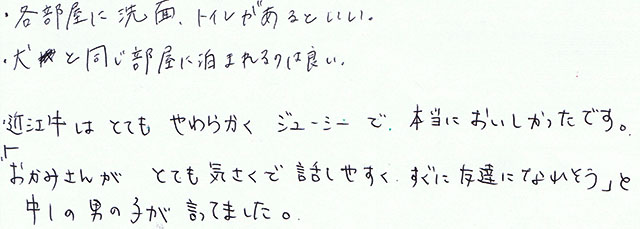 ・各部屋に洗面、トイレがあるといい。
・犬と同じ部屋に泊まれるのは良い。
・近江牛はとてもやわらかくジューシーで、本当においしかったです。
「おかみさんがとても気さくで話しやすく、すぐに友達になれそう」と
中1の男の子が言ってました。